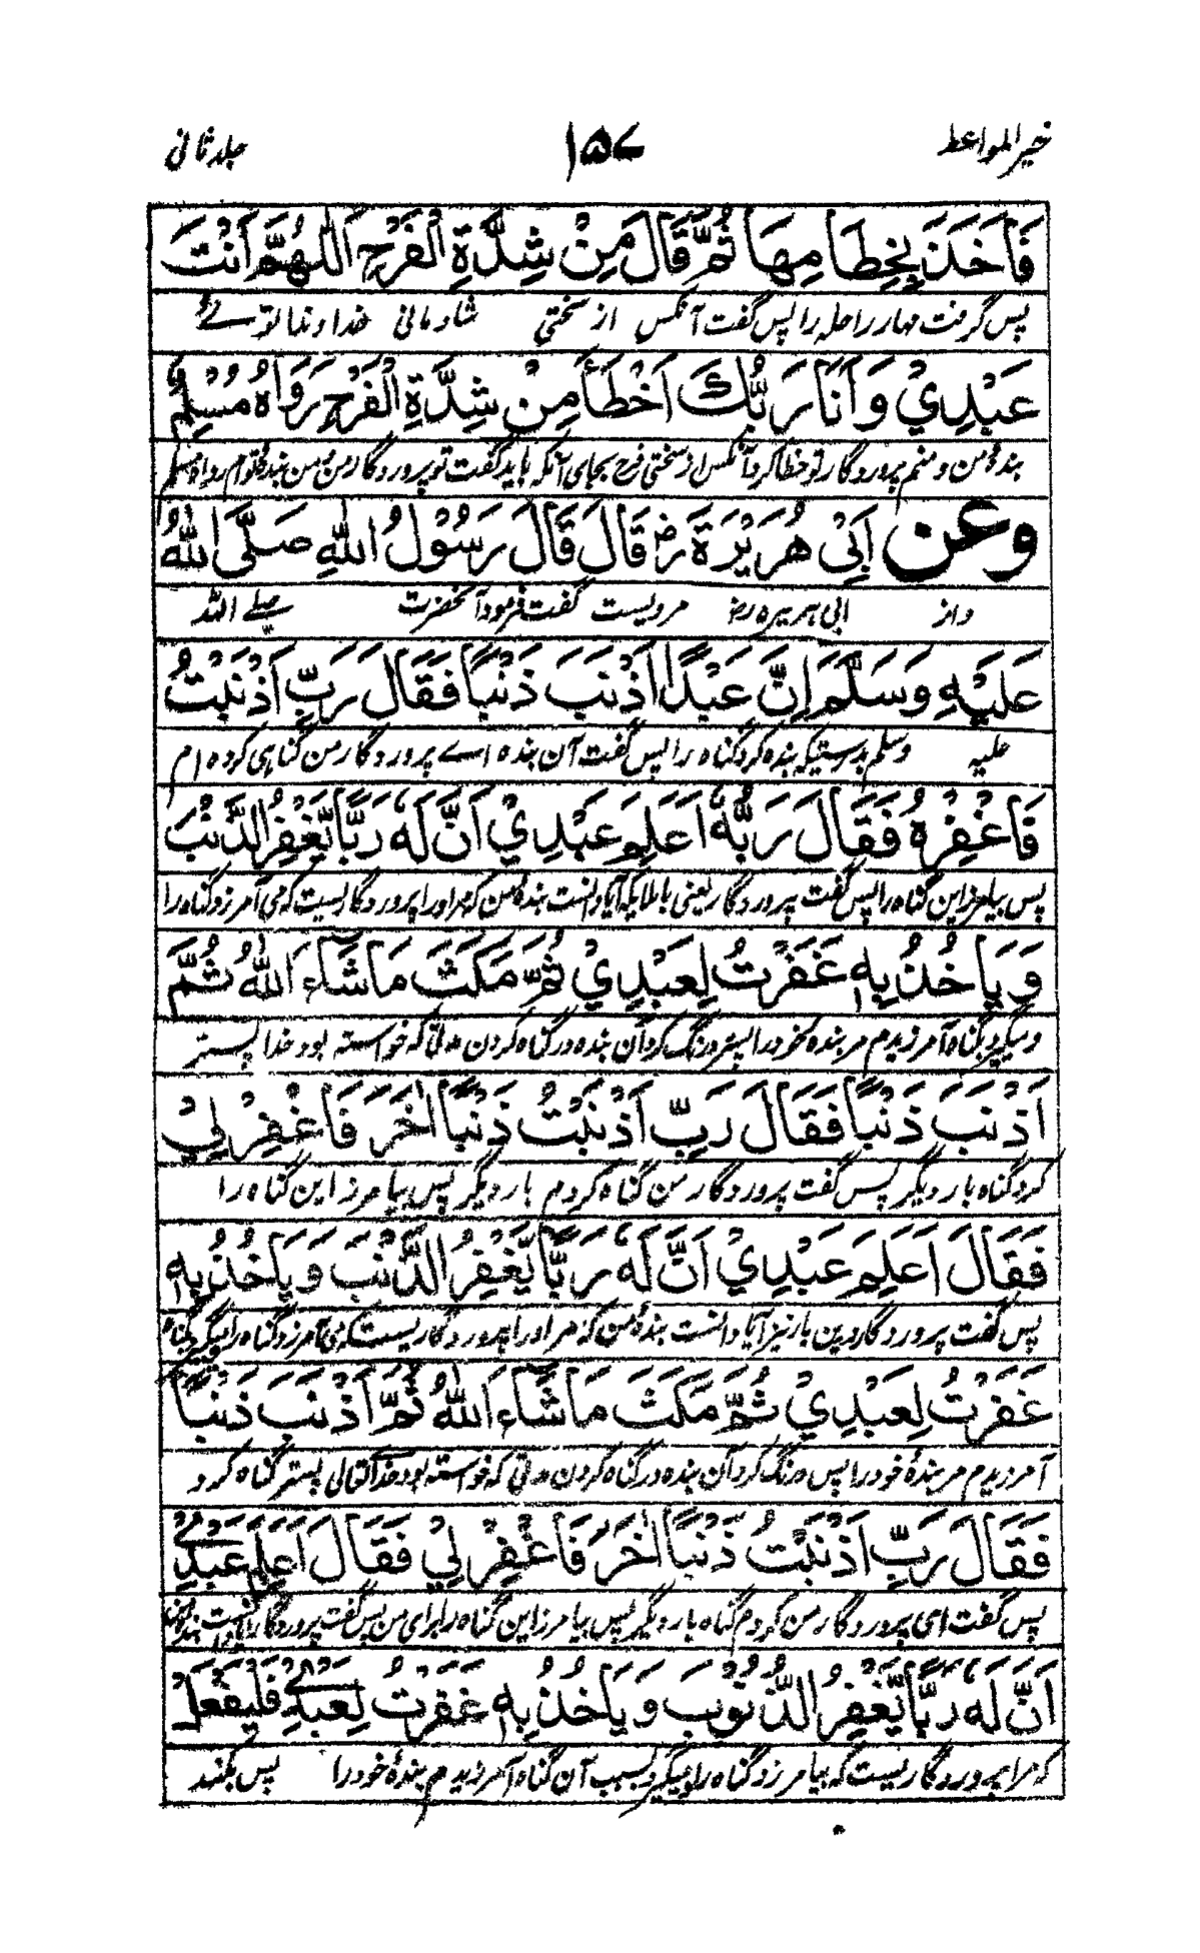 خیر المواعظ ۱۵۷ جلد ثانی
فَاَخَذَ بِخِطَامِهَا ثُمَّ قَالَ مِنْ شِدَّةِ الْفَرَحِ اَللّٰهُمَّ اَنْتَ
پس گرفت مهار راحله را پس گفت آنکس از سختی شادمانی خداوندا توئے
عَبْدِيْ وَاَنَا رَبُّكَ اَخْطَأَ مِنْ شِدَّةِ الْفَرَحِ رَوَاهُ مُسْلِمٌ
بندهٔ من و منم پروردگار تو خطا کرد آنکس از سختی فرح بجای آنکه باید گفت تو پروردگار من و من بندهٔ توام رواه مسلم
وعن اَبِيْ هُرَيْرَةَ رض قَالَ قَالَ رَسُوْلُ اللّٰهِ صَلَّى اللّٰهُ
و از ابی هریره رض مرویست گفت فرمود آنحضرت صلے الله
عَلَيْهِ وَسَلَّمَ اِنَّ عَبْدًا اَذْنَبَ ذَنْبًا فَقَالَ رَبِّ اَذْنَبْتُ
علیه وسلم بدرستیکه بنده کرد گناه را پس گفت آن بنده اے پروردگار من گناهی کرده ام
فَاغْفِرْهُ فَقَالَ رَبُّهٗ اَعَلِمَ عَبْدِيْ اَنَّ لَهٗ رَبًّا يَّغْفِرُ الذَّنْبَ
پس بیامرز این گناه را پس گفت پروردگار یعنی با ملایکه آیا دانست بندهٔ من که مر او را پروردگاریست که می آمرزد گناه را
وَيَاْخُذُ بِهٖ غَفَرْتُ لِعَبْدِيْ ثُمَّ مَكَثَ مَا شَآءَ اللّٰهُ ثُمَّ
و میگیرد بگناه آمرزیدم مر بنده خود را پستر درنگ کرد آن بنده در گناه کردن مدتی که خواسته بود خدا پستر
اَذْنَبَ ذَنْبًا فَقَالَ رَبِّ اَذْنَبْتُ ذَنْبًا اٰخَرَ فَاغْفِرْ لِيْ
کرد گناه بار دیگر پس گفت پروردگار من گناه کردم بار دیگر پس بیامرز این گناه را
فَقَالَ اَعَلِمَ عَبْدِيْ اَنَّ لَهٗ رَبًّا يَّغْفِرُ الذَّنْبَ وَيَاْخُذُ بِهٖ
پس گفت پروردگار درین بار نیز آیا دانست بندهٔ من که مر او را پروردگاریست که می آمرزد گناه را و میگیرد بگناه
غَفَرْتُ لِعَبْدِيْ ثُمَّ مَكَثَ مَا شَآءَ اللّٰهُ ثُمَّ اَذْنَبَ ذَنْبًا
آمرزیدم مر بندهٔ خود را پس درنگ کرد آن بنده در گناه کردن مدتی که خواسته بود خدا تعالی پستر گناه کرد
فَقَالَ رَبِّ اَذْنَبْتُ ذَنْبًا اٰخَرَ فَاغْفِرْ لِيْ فَقَالَ اَعَلِمَ عَبْدِيْ
پس گفت ای پروردگار من کردم گناه بار دیگر پس بیامرز این گناه را برای من پس گفت پروردگار
اَنَّ لَهٗ رَبًّا يَّغْفِرُ الذُّنُوْبَ وَيَاْخُذُ بِهٖ غَفَرْتُ لِعَبْدِيْ فَلْيَفْعَلْ
که مرا پروردگاریست که بیامرزد گناه را و میگیرد بسبب آن گناه آمرزیدم بندهٔ خود را پس بکند